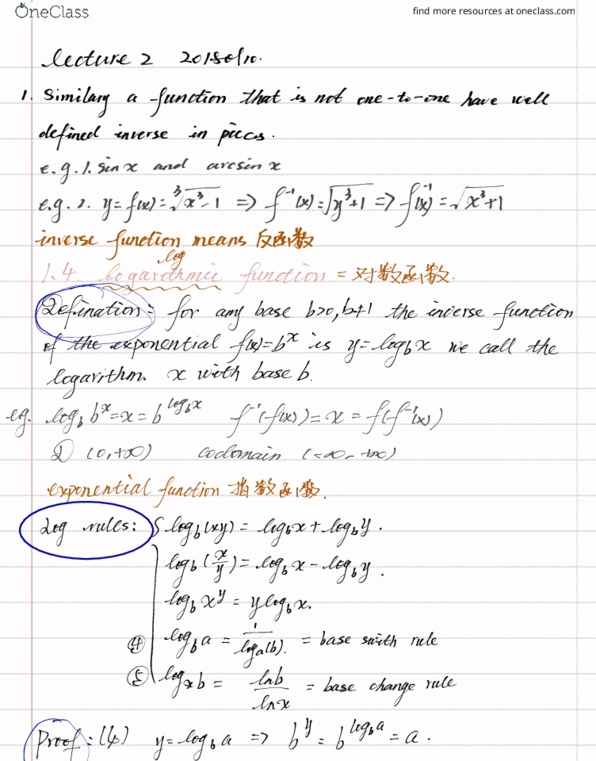 OneClass
find more resources at oneclass.com
lecture 2
1. Similary a function that is not one-to-one have well
defined inverse in pieces.
e.g.1. sin x and arcsin x
e.g. 2. y = f(x) = ∛(x³-1) => f⁻¹(x) = √(y³+1) => f(x)⁻¹ = √(x³+1)
inverse function means 反函数
log
1.4 logarithmic function = 对数函数.
Defination: for any base b>0, b+1 the inverse function
of the exponential f(x)=bˣ is y=log_b x we call the
logarithm. x with base b.
eg. log_b bˣ = x = b^(log_b x) f⁻¹(f(x)) = x = f(f⁻¹(x))
D (0,+∞) codomain (-∞, +∞)
exponential function 指数函数.
Log rules: log_b(xy) = log_b x + log_b y.
log_b(x/y) = log_b x - log_b y.
log_b x^y = y log_b x.
④ log_b a = 1/log_a(b). = base swith rule
⑤ log_x b = ln b/ln x = base change rule
Proof: (4) y = log_b a => b^y = b^(log_b a) = a.